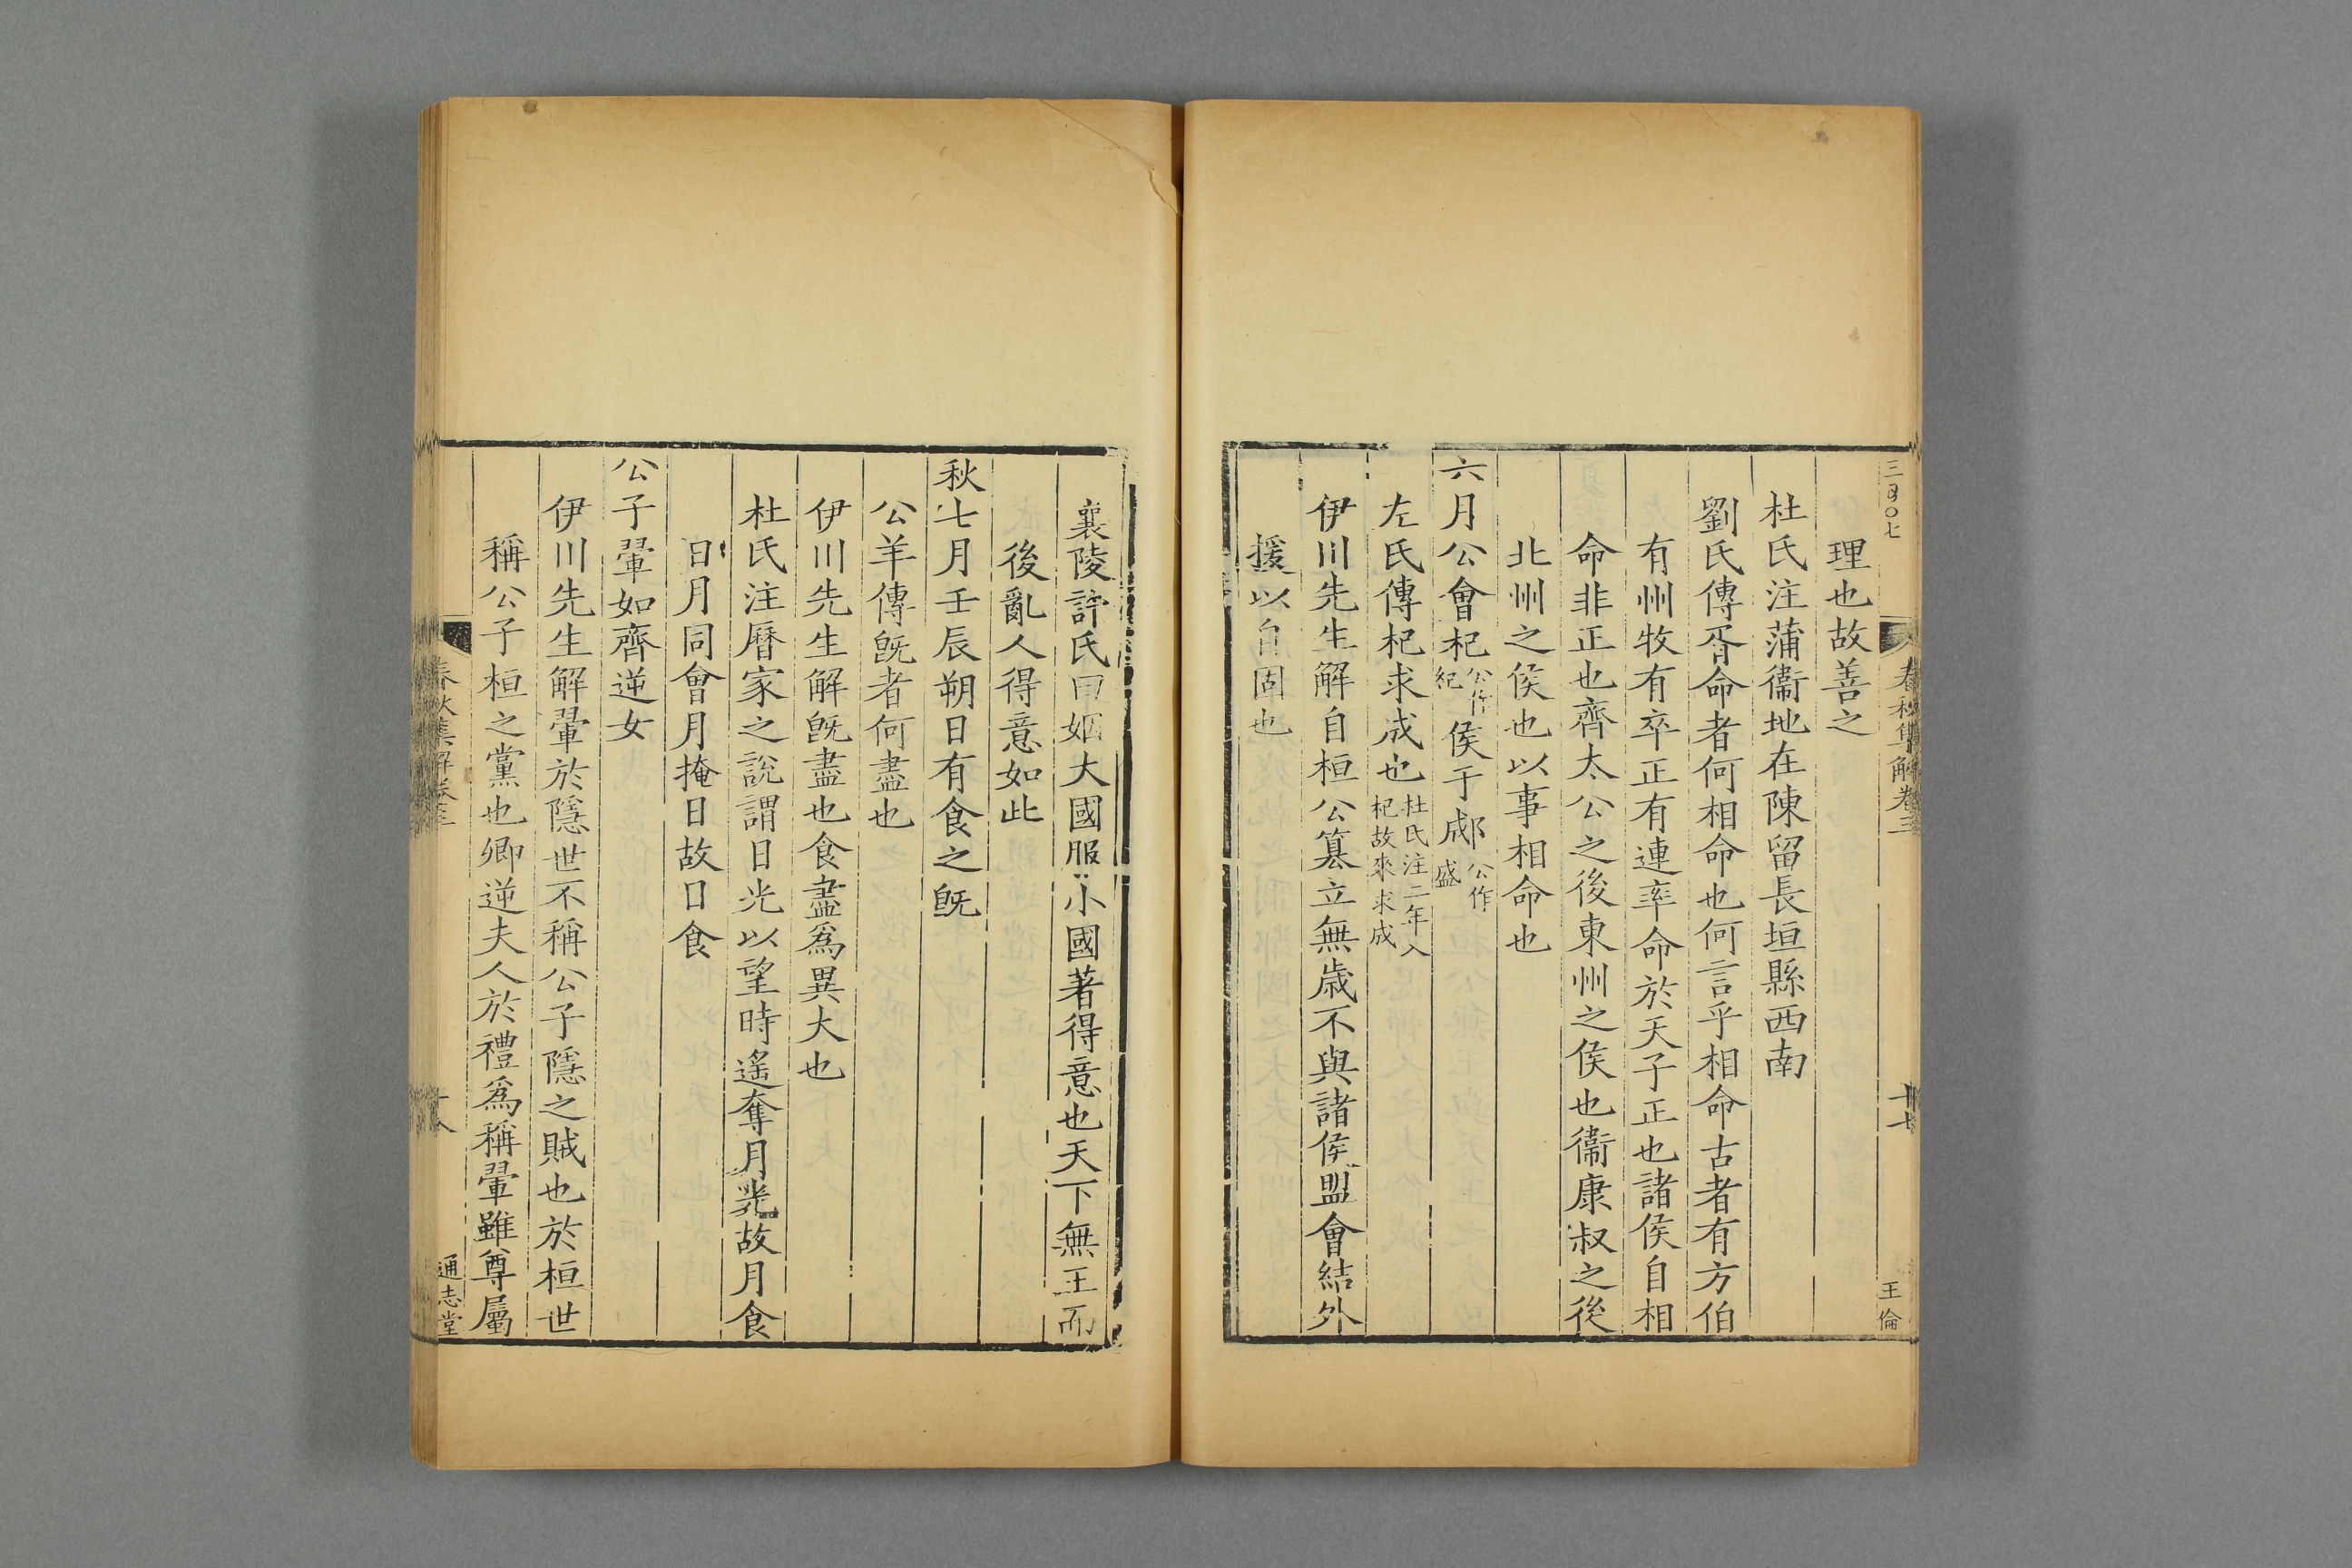 春秋集解卷三
十七
王倫
理也故善之
杜氏注蒲衞地在陳留長垣縣西南
劉氏傳胥命者何相命也何言乎相命古者有方伯
有州牧有卒正有連率命於天子正也諸侯自相
命非正也齊太公之後東州之侯也衞康叔之後
北州之侯也以事相命也
六月公會杞公作紀侯于郕公作盛
左氏傳杞求成也杜氏注二年入杞故來求成
伊川先生解自桓公簒立無歳不與諸侯盟會結外
援以自固也
襄陵許氏曰姻大國服小國著得意也天下無王而
後亂人得意如此
秋七月壬辰朔日有食之旣
公羊傳旣者何盡也
伊川先生解旣盡也食盡爲異大也
杜氏注曆家之說謂日光以望時遙奪月光故月食
日月同會月掩日故日食
公子翬如齊逆女
伊川先生解翬於隱世不稱公子隱之賊也於桓世
稱公子桓之黨也卿逆夫人於禮爲稱翬雖尊屬
春秋集解卷三
十八
通志堂